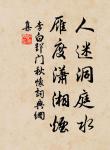 人迷洞庭水
雁度瀟湘煙
李白郢門秋懷詞典網
集